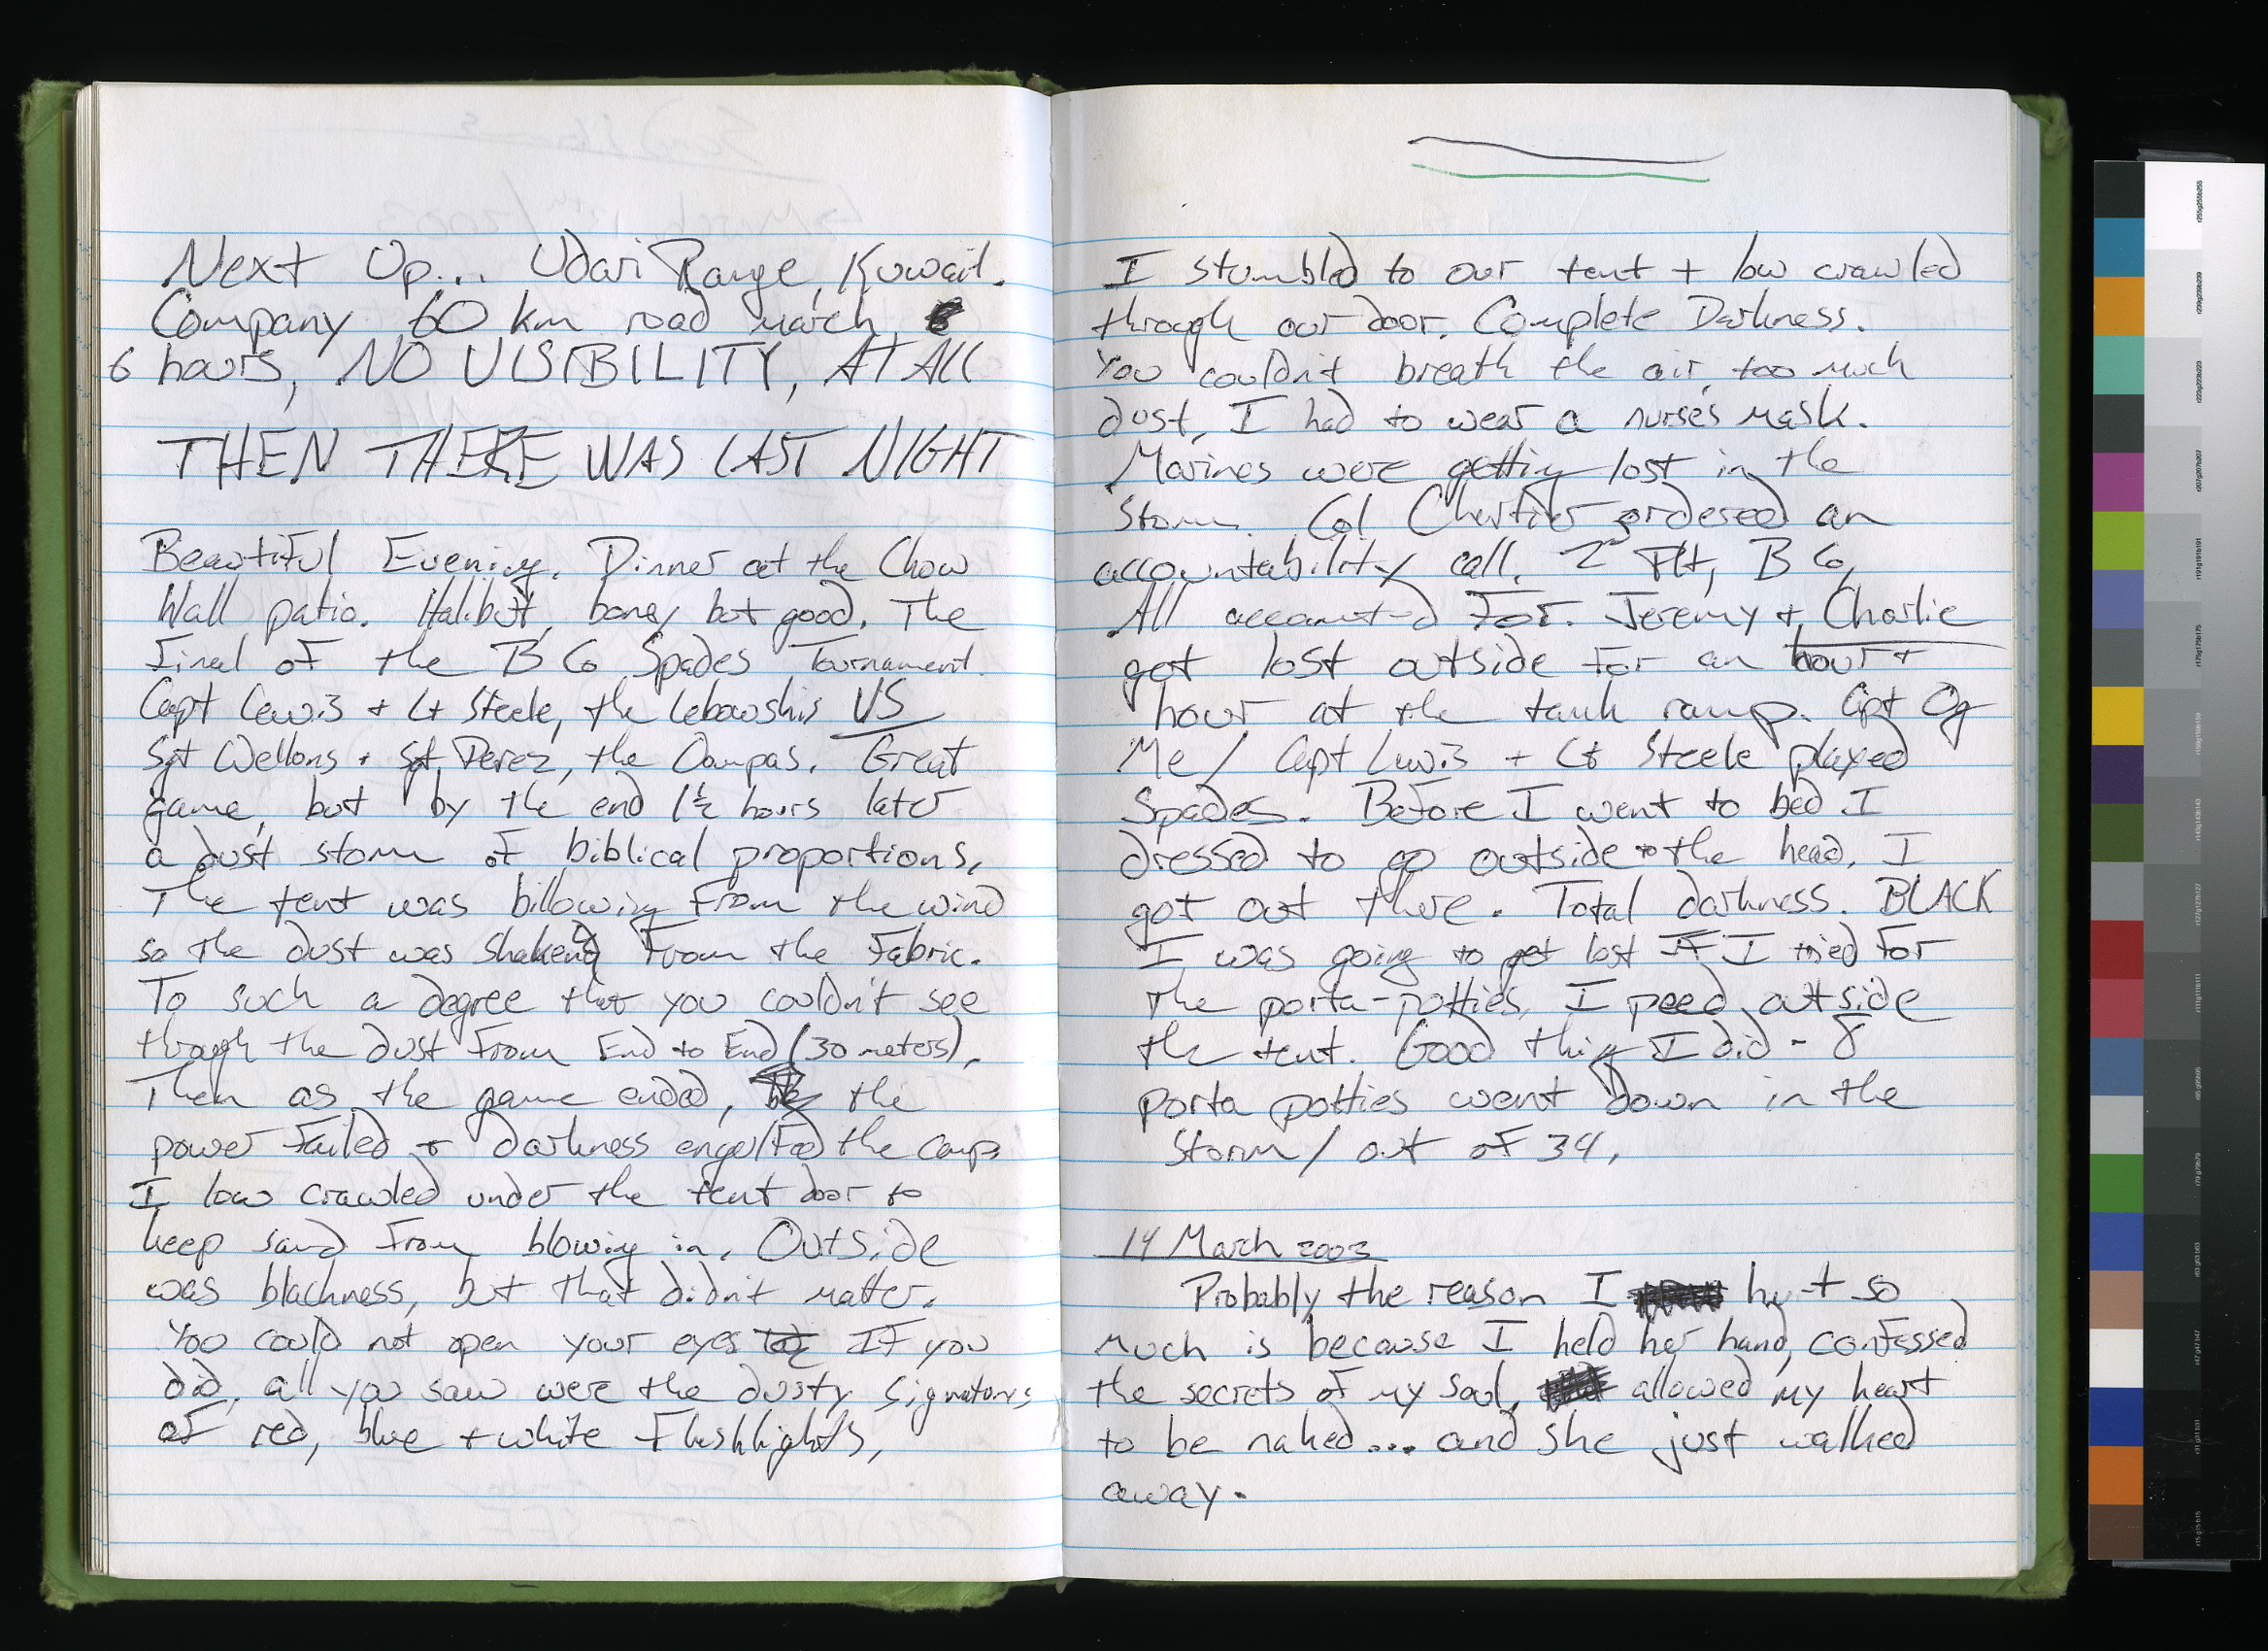 Next Up... Udari Range, Kuwait.
Company 60 km road march,
6 hours, NO VISIBILITY, AT ALL
THEN THERE WAS LAST NIGHT
Beautiful Evening. Dinner at the Chow
Hall patio. Halibut, boney but good. The
Final of the B Co Spades Tournament.
Capt Lewis + Lt Steele, the Lebowskis VS
Sgt Wellons + Sgt Perez, the Oompas. Great
game, but by the end 1½ hours later
a dust storm of biblical proportions.
The tent was billowing from the wind
so the dust was shaken from the Fabric.
To such a degree that you couldn't see
through the dust from End to End (30 meters).
Then as the game ended, the
power failed + darkness engulfed the camp.
I low crawled under the tent door to
keep sand from blowing in. Outside
was blackness, but that didn't matter.
You could not open your eyes If you
did, all you saw were the dusty signatures
of red, blue + white Flashlights,
I stumbled to our tent + low crawled
through our door. Complete Darkness.
You couldn't breath the air, too much
dust, I had to wear a nurse's mask.
Marines were getting lost in the
Storm. Col Chartier ordered an
accountability call. 2ⁿᵈ Plt, B Co,
All accounted For. Jeremy + Charlie
got lost outside for an hour +
hour at the tank ramp. Cpt Og
Me / Capt Lewis + Lt Steele played
Spades. Before I went to bed I
dressed to go outside to the head. I
got out there. Total darkness. BLACK
I was going to get lost If I tried For
the porta-potties. I peed outside
the tent. Good thing I did - 8
porta potties went down in the
Storm / out of 34.
14 March 2003
Probably the reason I hurt so
much is because I held her hand, confessed
the secrets of my soul, allowed my heart
to be naked... and she just walked
away.